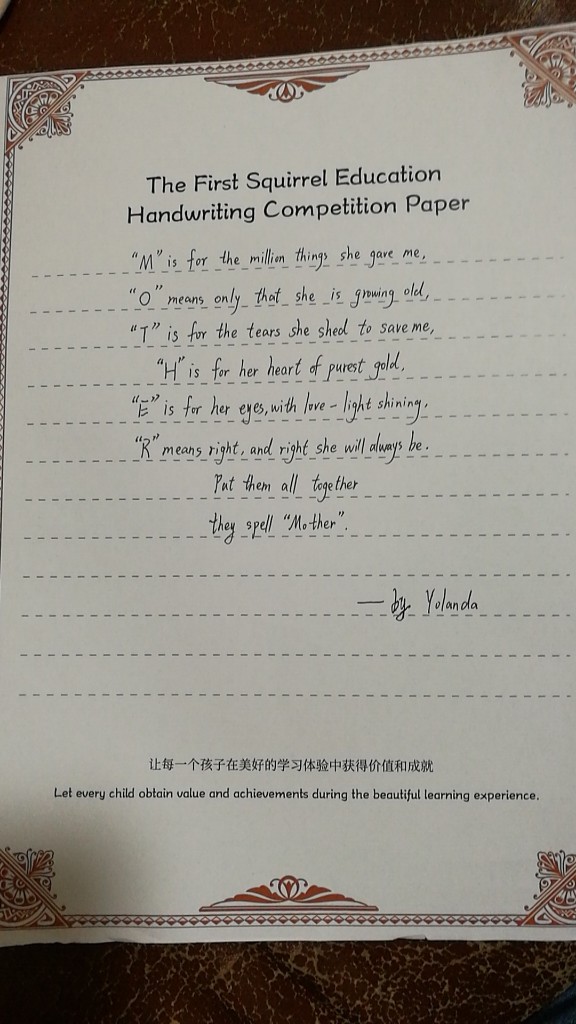 The First Squirrel Education
Handwriting Competition Paper
"M" is for the million things she gave me,
"O" means only that she is growing old,
"T" is for the tears she shed to save me,
"H" is for her heart of purest gold,
"E" is for her eyes, with love-light shining,
"R" means right, and right she will always be.
Put them all together
they spell "Mother".
— by Yolanda
让每一个孩子在美好的学习体验中获得价值和成就
Let every child obtain value and achievements during the beautiful learning experience.